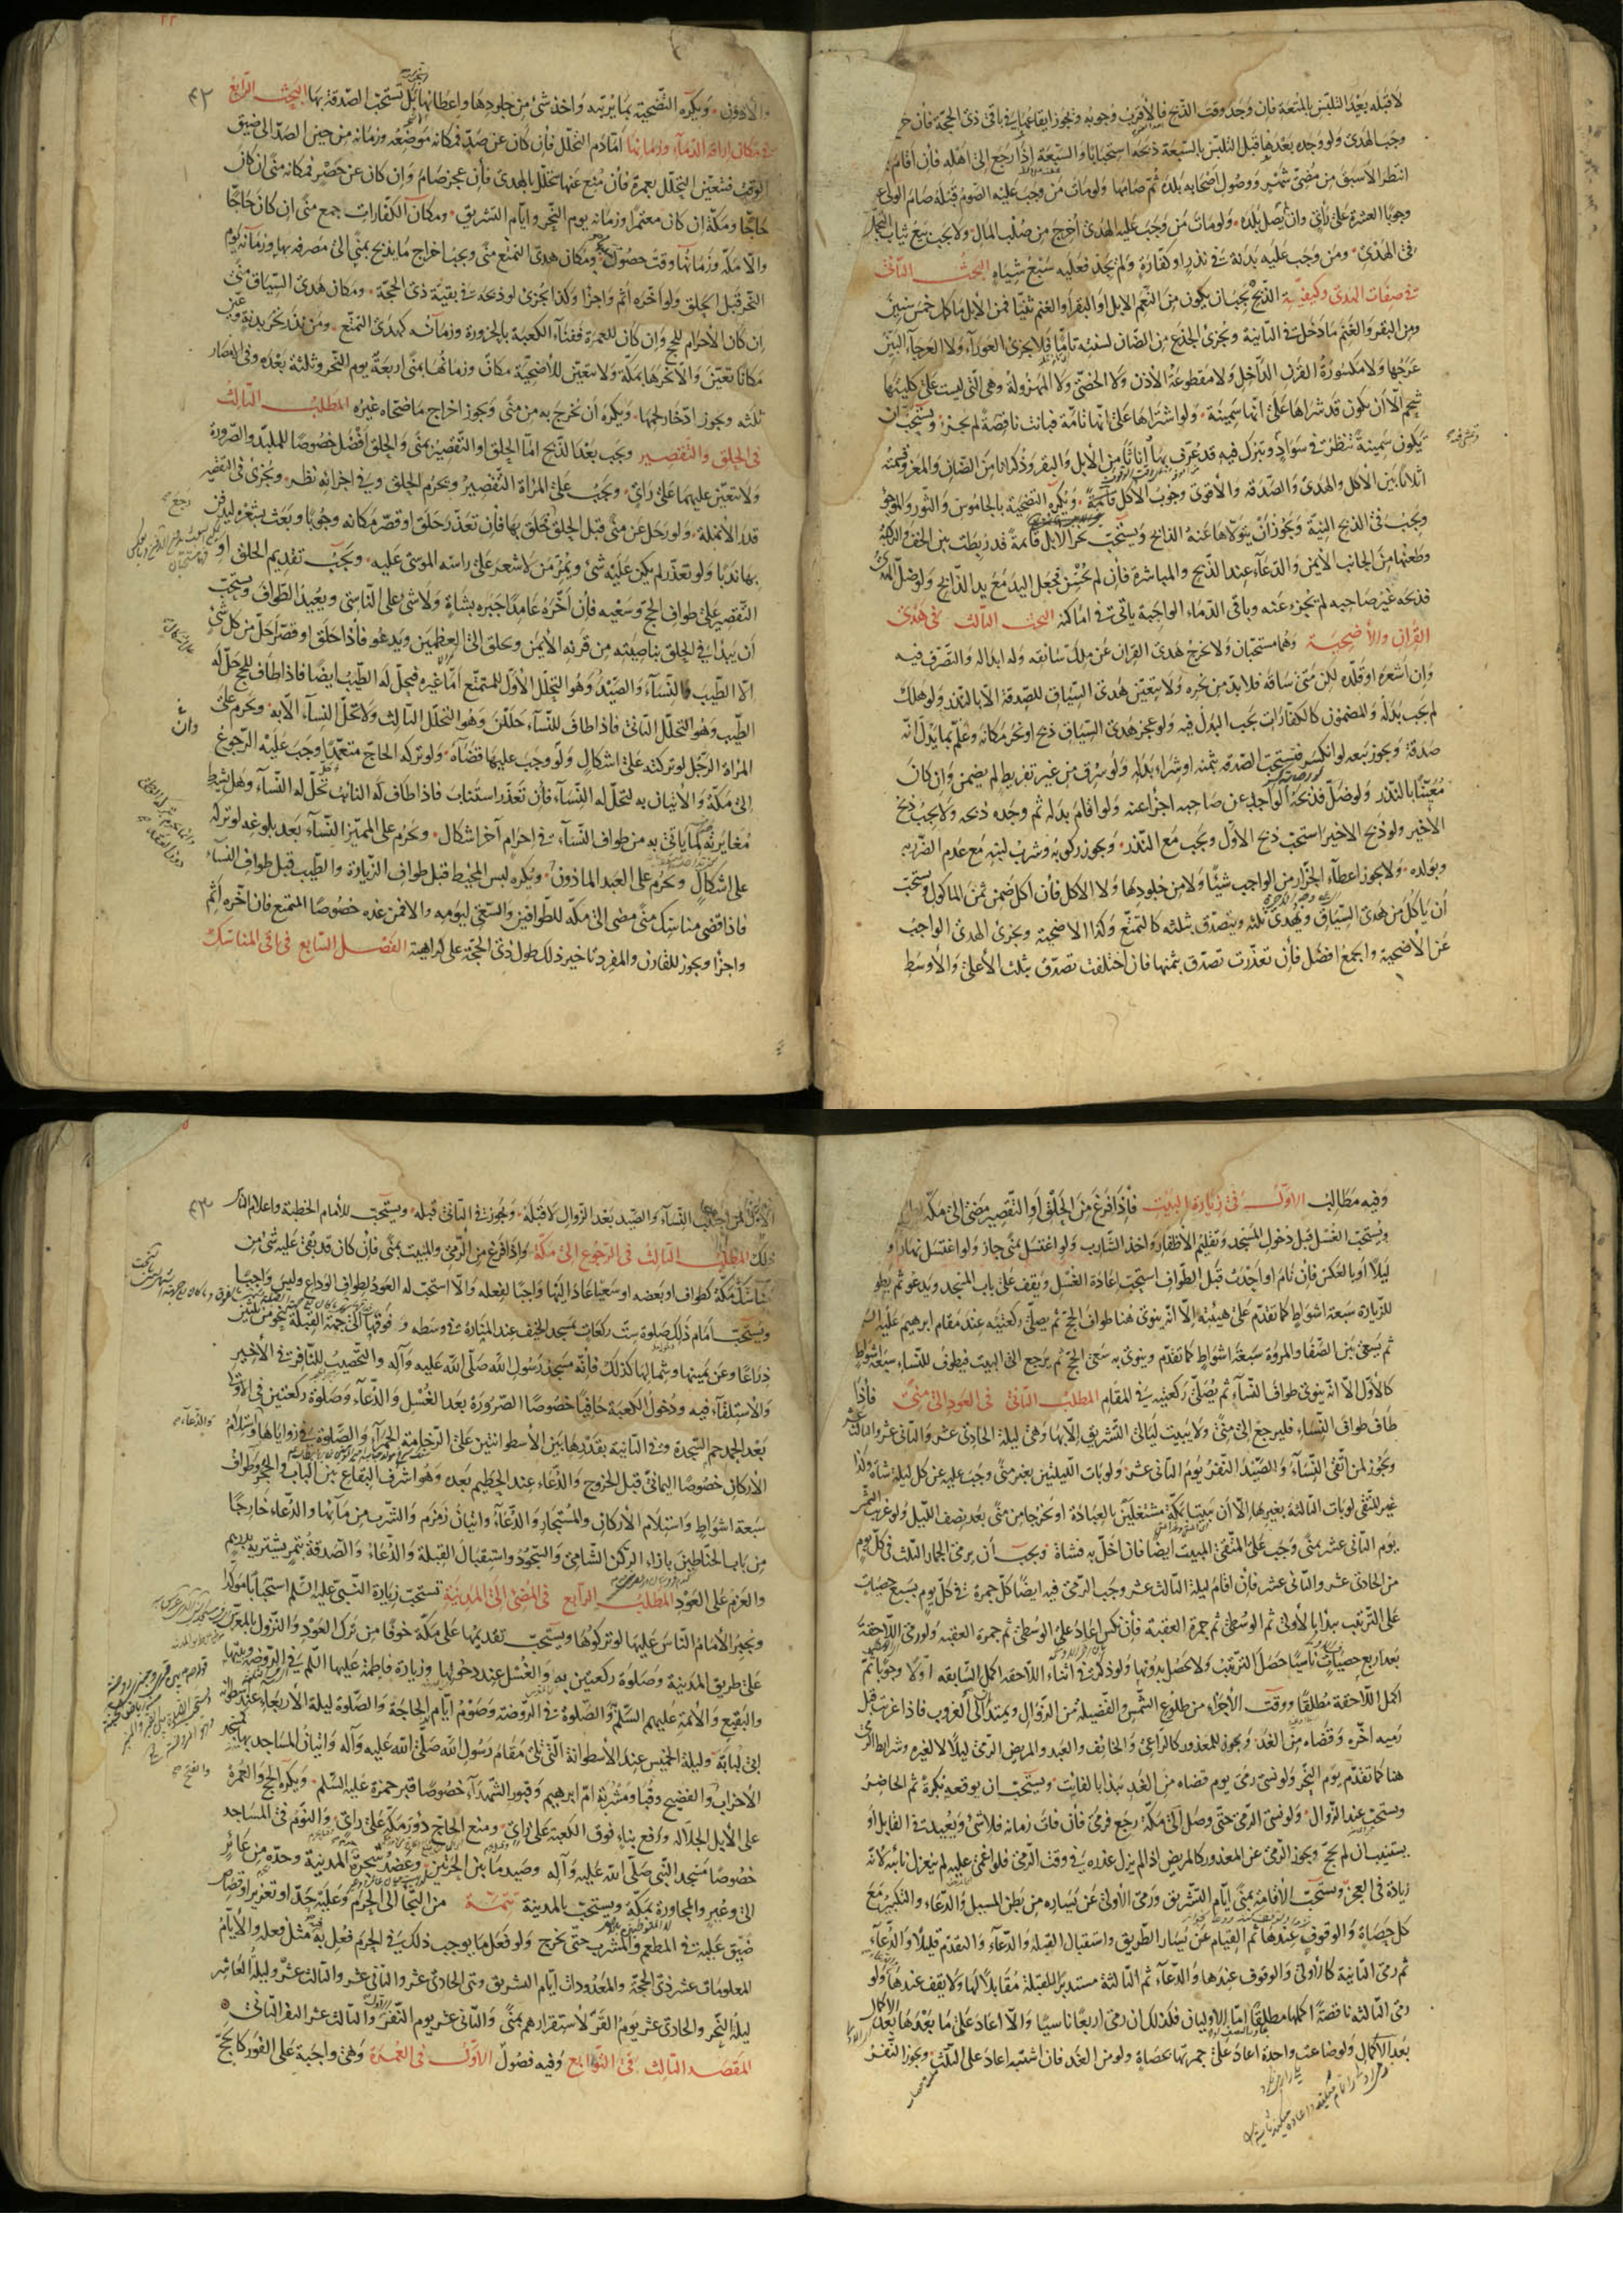 لا قبله بعد التلبّس بالمتعة فان وجد وقت الذبح فالأقرب وجوبه ويجوز ايقاعها في باقي ذي الحجة فان خرج
وجب الهدى ولو وجده بعدها قبل التلبّس بالسبعة ذبحه استحبابا والسبعة إذا رجع إلى اهله فان أقام
انتظر الأسبق من مضيّ شهر ووصول أصحابه بلده ثم صامها ولو مات من وجب عليه الصوم قبله صام الولي
وجوبا العشرة على رأي وان لم يصل بلده ولو مات من وجب عليه الهدى أخرج من صلب المال ولا يجب بيع ثياب التجمل
في الهدى ومن وجب عليه بدنة في نذر او كفارة ولم يجد فعليه سبع شياه البحث الثاني
في صفات الهدى وكيفية الذبح يجب ان يكون من النعم الابل او البقر او الغنم ثنيّا فمن الأبل ما كمل خمس سنين
ومن البقر والغنم ما دخل في الثانية ويجزئ الجذع من الضان لسنته تامّا فلا يجزئ العوراء ولا العرجاء البيّن
عرجها ولا مكسورة القرن الداخل ولا مقطوعة الأذن ولا الخصيّ ولا المهزولة وهي التي ليست على كليتيها
شحم الّا ان يكون قد شراها على انّها سمينة ولو اشتراها على انّها تامّة فبانت ناقصة لم يجز ويستحب ان
يكون سمينة تنظر في سواد وتبرك فيه قد عرّف بها اناثا من الأبل والبقر وذكرانا من الضان والمعز وقسمته
اثلاثا بين الأكل والهدى والصدقة والأقوى وجوب الأكل ويكره التضحية بالجاموس والثور والموجوء
ويجب في الذبح النيّة ويجوز أن يتولّاها عنه الذابح ويستحب نحر الأبل قائمة قد ربطت بين الخف والركبة
وطعنها من الجانب الأيمن والدعاء عند الذبح والمباشرة فان لم يحسن فجعل اليد مع يد الذابح ولو ضلّ الهدى
فذبحه غير صاحبه لم يجزء عنه وباقي الدماء الواجبة يأتي في أماكنه البحث الثالث في هدى
القران والأضحية وهما مستحبان ولا يخرج هدى القران عن ملك سائقه وله ابداله والتصرف فيه
وان اشعره او قلّده لكن متى ساقه فلا بدّ من نحره ولا يتعيّن هدى السياق للصدقة الّا بالنذر ولو هلك
لم يجب بدله والمضمون كالكفارات يجب البدل فيه ولو عجز هدى السياق ذبح او نحر مكانه وعلّم بما يدل انّه
صدقة ويجوز بيعه لو انكسر فيستحب الصدقة بثمنه او شراء بدله ولو سرق من غير تفريط لم يضمن وان كان
معيّنا بالنذر ولو ضلّ فذبحه الواجد عن صاحبه اجزأ عنه ولو اقام بدله ثم وجده ذبحه ولا يجب ذبح
الاخير ولو ذبح الاخير استحب ذبح الأوّل ويجب مع النذر ويجوز ركوبه وشرب لبنه مع عدم الضرر به
وبولده ولا يجوز اعطاء الجزّار من الواجب شيئا ولا من جلودها ولا الاكل فان اكل ضمن ثمن المأكول ويستحب
أن يأكل من هدى السياق ويهدى ثلثه ويتصدق بثلثه كالتمتع وكذا الاضحية ويجزئ الهدى الواجب
عن الأضحية والجمع افضل فان تعذرت تصدق بثمنها فان اختلفت تصدق بثلث الأعلى والأوسط
٤٢
والادون ويكره التضحية بما يربّيه واخذ شئ من جلودها واعطائها بل تستحب الصدقة بها البحث الرابع
في مكان اراقة الدماء وزمانها امّا دم التحلل فان كان عن صدّ فمكانه موضعه وزمانه من حين الصدّ الى ضيق
الوقت فتعيّن التحلل بعمرة فان منع عنها تحلل بالهدى فان عجز صام وان كان عن حصر فمكانه منى ان كان
حاجّا ومكة إن كان معتمرا وزمانه يوم النحر وايام التشريق ومكان الكفارات جمع منى ان كان حاجّا
والّا مكة وزمانها وقت حصول ومكان هدى التمتع منى ويجب اخراج ما يذبح بمنى الى مصرفه بها وزمانه يوم
النحر قبل الحلق ولو أخّره أثم واجزأ وكذا يجزئ لو ذبحه في بقيّة ذي الحجة ومكان هدى السياق منى
ان كان الأحرام للحج وان كان للعمرة ففناء الكعبة بالحزورة وزمانه كهدى التمتع ومن نذر نحر بدنة وعيّن
مكانا تعيّن والّا نحرها بمكة ولا يتعيّن للأضحية مكان وزمانها بمنى اربعة يوم النحر وثلثة بعده وفي الامصار
ثلثه ويجوز ادّخار لحمها ويكره أن يخرج به من منى ويجوز اخراج ما ضحّاه غيره المطلب الثالث
في الحلق والتقصير ويجب بعد الذبح امّا الحلق او التقصير بمنى والحلق أفضل خصوصا للملبّد والصرورة
ولا يتعيّن عليهما على رأي ويجب على المرأة التقصير ويحرم الحلق وفي اجزائه نظر ويجزئ في التقصير
قدر الأنملة ولو رحل عن منى قبل الحلق حلق بها فان تعذّر حلق او قصّر مكانه وجوبا وبعث بشعره ليدفن
بها ندبا ولو تعذّر لم يكن عليه شئ ويمرّ من لا شعر على راسه الموسى عليه ويجب تقديم الحلق او
التقصير على طواف الحج وسعيه فان أخّره عامدا جبره بشاة ولا شئ على الناسي ويعيد الطواف ويستحب
أن يبدأ في الحلق بناصيته من قرنه الأيمن ويحلق الى العظمين ويدعو فاذا حلق او قصّر أحلّ من كل شئ
الّا الطيب والنساء والصيد وهو التحلل الأوّل للمتمتع أمّا غيره فيحلّ له الطيب ايضا فاذا طاف للحج حلّ له
الطيب وهو التحلل الثاني فاذا طاف للنساء حللن وهو التحلل الثالث ولا تحلّ النساء الّا به ويحرم على
المرأة الرجل لو تركته على اشكال ولو وجب عليها قضاءه ولو تركه الحاج متعمّدا وجب عليه الرجوع
الى مكة والاتيان به لتحلّ له النساء فان تعذّر استناب فاذا طاف له النائب تحلّ له النساء وهل يشترط
مغايرته لما يأتي به من طواف النساء في احرام آخر اشكال ويحرم على المميّز النساء بعد بلوغه لو تركه
على اشكال ويحرم على العبد الماذون ويكره لبس المخيط قبل طواف الزيارة والطيب قبل طواف النساء
فاذا قضى مناسك منى مضى الى مكة للطوافين والسعي ليومه والا فمن غده خصوصا المتمتع فان اخّره أثم
واجزأ ويجوز للقارن والمفرد تأخير ذلك طول ذي الحجة على كراهية الفصل السابع في باقي المناسك
وفيه مطالب الأوّل في زيارة البيت فاذا فرغ من الحلق او التقصير مضى الى مكة
ويستحب الغسل قبل دخول المسجد وتقليم الأظفار واخذ الشارب ولو اغتسل بمنى جاز ولو اغتسل نهارا و
ليلا او بالعكس فان نام او احدث قبل الطواف استحب اعادة الغسل ويقف على باب المسجد ويدعو ثم يطوف
للزيارة سبعة اشواط كما تقدم على هيئته إلّا انّه ينوي هنا طواف الحج ثم يصلّي ركعتيه عند مقام ابرهيم عليه
ثم يسعى بين الصفا والمروة سبعة اشواط كما تقدم وينوي به سعي الحج ثم يرجع الى البيت فيطوف للنساء سبعة اشواط
كالأوّل الّا انّه ينوي طواف النساء ثم يصلّي ركعتيه في المقام المطلب الثاني في العود الى منى فاذا
طاف طواف النساء فليرجع الى منى ولا يبيت ليالي التشريق الّا بها وهي ليلة الحادي عشر والثاني عشر والثالث عشر
ويجوز لمن اتّقى النساء والصيد النفر يوم الثاني عشر ولو بات الليلتين بغير منى وجب عليه عن كل ليلة شاة وكذا
غير المتقي لو بات الثالثة بغيرها الّا أن يبيتا بمكة مشتغلين بالعبادة او يخرجا من منى بعد نصف الليل ولو غربت الشمس
يوم الثاني عشر بمنى وجب على المتقي المبيت ايضا فان اخلّ به فشاة ويجب أن يرمي الجمار الثلث في كل يوم
من الحادي عشر والثاني عشر فان أقام ليلة الثالث عشر وجب الرمي فيه ايضا كل جمرة في كل يوم بسبع حصيات
على الترتيب يبدأ بالأولى ثم الوسطى ثم جمرة العقبة فان نكس اعاد على الوسطى ثم جمرة العقبة ولو رمى اللاحقة
بعد اربع حصيات ناسيا حصل الترتيب ولا يحصل بدونها ولو ذكر في أثناء اللاحقة اكمل السابقة اولا وجوبا ثم
اكمل اللاحقة مطلقا ووقت الأجزاء من طلوع الشمس والفضيلة من الزوال ويمتد الى الغروب فاذا غربت قبل
رميه اخّره وقضاه من الغد ويجوز للمعذور كالراعي والخائف والعبد والمريض الرمي ليلا لا لغيره وشرائط الرمي
هنا كما تقدم يوم النحر ولو نسي رمي يوم قضاه من الغد يبدأ بالفائت ويستحب ان يوقعه بكرة ثم الحاضر
ويستحب عند الزوال ولو نسي الرمي حتى وصل الى مكة رجع فرمى فان فات زمانه فلا شئ ويعيد في القابل او
يستنيب ان لم يحج ويجوز الرمي عن المعذور كالمريض اذا لم يزل عذره في وقت الرمي فلو اغمي عليه لم ينعزل نائبه لأنّه
زيادة في العجز ويستحب الأقامة بمنى ايام التشريق ورمي الأولى عن يساره من بطن المسيل والدعاء والتكبير مع
كل حصاة والوقوف عندها ثم القيام عن يسار الطريق واستقبال القبلة والدعاء والتقدم قليلا والدعاء
ثم رمي الثانية كالأولى والوقوف عندها والدعاء ثم الثالثة مستدبر القبلة مقابلا لها ولا يقف عندها ولو
رمى الثالثة ناقصة اكملها مطلقا امّا الاوليان فكذلك ان رمى اربعا ناسيا والّا اعاد على ما بعدها بعد الاكمال
بعد الاكمال ولو ضاعت واحدة اعاد على جمرتها بحصاة ولو من الغد فان اشتبه اعاد على الثلث ويجوز النفر
٤٣
الأوّل لمن اجتنب النساء والصيد بعد الزوال لا قبله ويجوز في الثاني قبله ويستحب للأمام الخطبة واعلام الناس
ذلك المطلب الثالث في الرجوع الى مكة واذا فرغ من الرمي والمبيت بمنى فان كان قد بقي عليه شئ من
مناسك مكة كطواف او بعضه او سعي اعاد اليها واجبا لفعله والّا استحب له العود لطواف الوداع وليس واجبا
ويستحب أمام ذلك صلوة ست ركعات بمسجد الخيف عند المنارة في وسطه وفوقها الى جهة القبلة بنحو من ثلثين
ذراعا وعن يمينها وشمالها كذلك فانّه مسجد رسول الله صلّى الله عليه وآله والتحصيب للنافر في الأخير
والاستلقاء فيه ودخول الكعبة حافيا خصوصا الصرورة بعد الغسل والدعاء وصلوة ركعتين في الأولى
بعد الحمد حم السجدة وفي الثانية بقدرها بين الأسطوانتين على الرخامة الحمراء والصلوة في زواياها واستلام
الأركان خصوصا اليماني قبل الخروج والدعاء عند الحطيم بعده وهو اشرف البقاع بين الباب والحجر وطواف
سبعة اشواط واستلام الأركان والمستجار والدعاء واتيان زمزم والشرب من مائها والدعاء خارجا
من باب الحناطين بازاء الركن الشامي والسجود واستقبال القبلة والدعاء والصدقة بتمر يشتريه بدرهم
والعزم على العود المطلب الرابع في المضي الى المدينة تستحب زيارة النبي عليه السلم استحبابا مؤكدا
ويجبر الأمام الناس عليها لو تركوها ويستحب تقديمها على مكة خوفا من ترك العود والنزول بالمعرس
على طريق المدينة وصلوة ركعتين به والغسل عند دخولها وزيارة فاطمة عليها السلم في الروضة وبيتها
والبقيع والأئمة عليهم السلم والصلوة في الروضة وصوم ايام الحاجة والصلوة ليلة الأربعاء عند اسطوانة
ابي لبابة وليلة الخميس عند الأسطوانة التي تلي مقام رسول الله صلّى الله عليه وآله واتيان المساجد بها كمسجد
الأحزاب والفضيخ وقبا ومشربة امّ ابرهيم وقبور الشهداء خصوصا قبر حمزة عليه السلم ويكره الحج والعمرة
على الأبل الجلالة ورفع بناء فوق الكعبة على رأي ومنع الحاج دور مكة على رأي والنوم في المساجد
خصوصا مسجد النبي صلّى الله عليه وآله وصيد ما بين الحرتين وعضد شجر المدينة وحدّه من عائر
الى وعير والمجاورة بمكة ويستحب بالمدينة تتمّة من التجأ الى الحرم وعليه حدّ او تعزير او قصاص
ضيّق عليه في المطعم والمشرب حتى يخرج ولو فعل ما يوجب ذلك في الحرم فعل به مثل فعله والأيام
المعلومات عشر ذي الحجة والمعدودات ايام التشريق وهي الحادي عشر والثاني عشر والثالث عشر وليلة العاشر
ليلة النحر والحادي عشر يوم القرّ لاستقرارهم بمنى والثاني عشر يوم النفر الأول والثالث عشر النفر الثاني
المقصد الثالث في التوابع وفيه فصول الأوّل في العمرة وهي واجبة على الفور كالحج